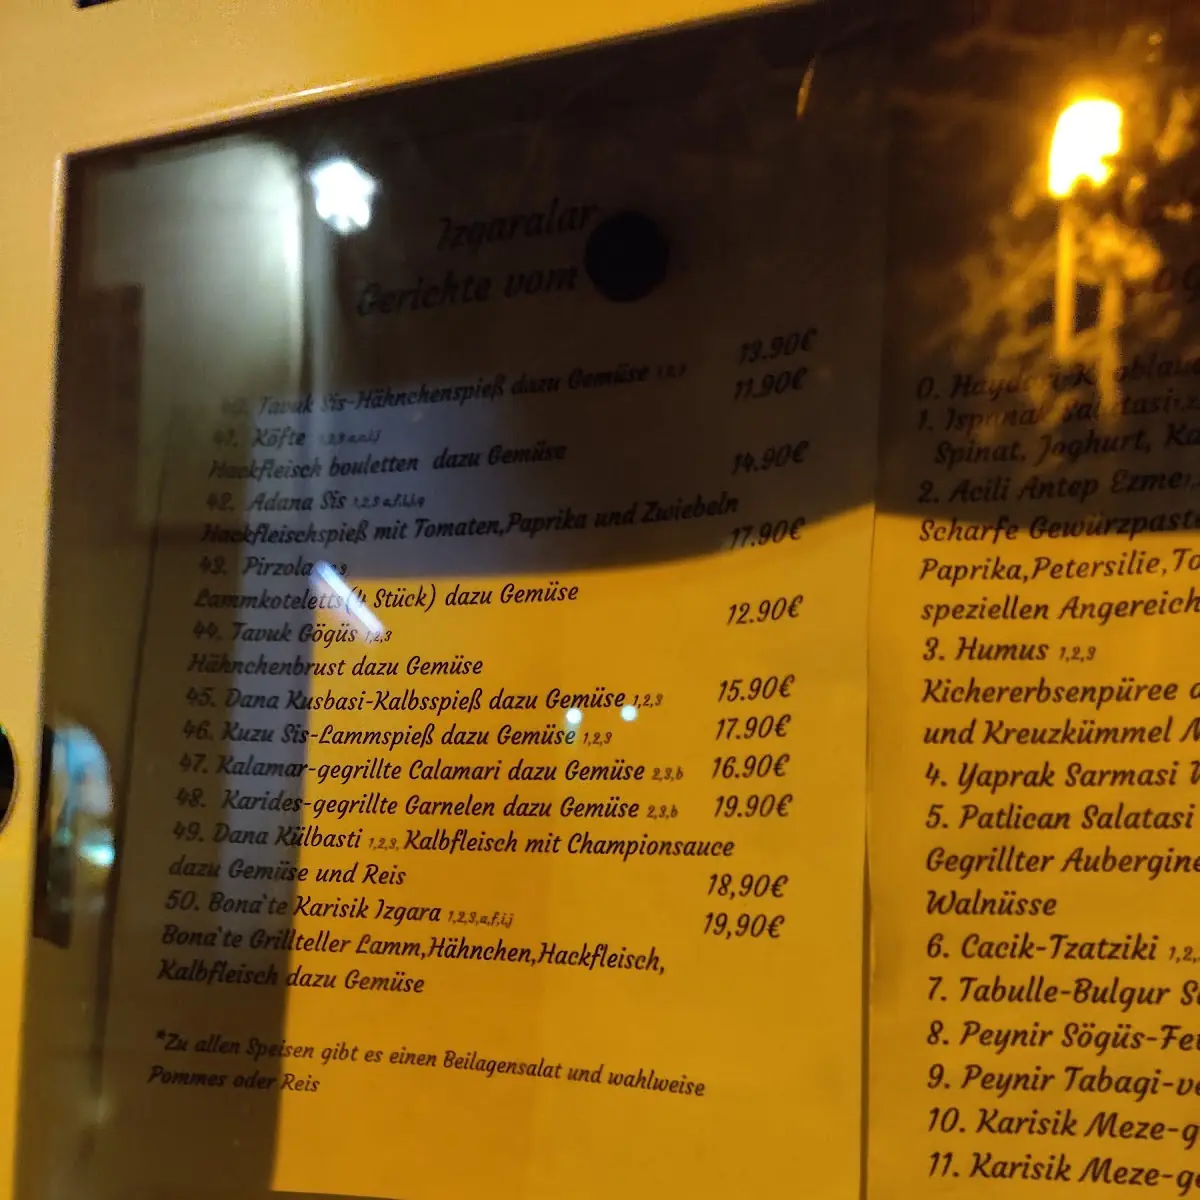 Izgaralar
Gerichte vom
40. Tavuk Sis-Hähnchenspieß dazu Gemüse 1,2,3 13.90€
41. Köfte 11.90€
Hackfleisch bouletten dazu Gemüse
42. Adana Sis 14.90€
Hackfleischspieß mit Tomaten,Paprika und Zwiebeln
43. Pirzola 17.90€
Lammkoteletts(4 Stück) dazu Gemüse
44. Tavuk Gögüs 1,2,3 12.90€
Hähnchenbrust dazu Gemüse
45. Dana Kusbasi-Kalbsspieß dazu Gemüse 1,2,3 15.90€
46. Kuzu Sis-Lammspieß dazu Gemüse 1,2,3 17.90€
47. Kalamar-gegrillte Calamari dazu Gemüse 2,3,b 16.90€
48. Karides-gegrillte Garnelen dazu Gemüse 2,3,b 19.90€
49. Dana Külbasti 1,2,3, Kalbfleisch mit Championsauce
dazu Gemüse und Reis 18,90€
50. Bona`te Karisik Izgara 1,2,3,a,f,i,j 19,90€
Bona`te Grillteller Lamm,Hähnchen,Hackfleisch,
Kalbfleisch dazu Gemüse
*Zu allen Speisen gibt es einen Beilagensalat und wahlweise
Pommes oder Reis
0.
1. Ispanak
Spinat, Joghurt,
2. Acili Antep Ezme
Scharfe Gewürzpast
Paprika,Petersilie,To
speziellen Angereich
3. Humus 1,2,3
Kichererbsenpüree
und Kreuzkümmel
4. Yaprak Sarmasi
5. Patlican Salatasi
Gegrillter Aubergine
Walnüsse
6. Cacik-Tzatziki 1,2,
7. Tabulle-Bulgur
8. Peynir Sögüs-Fe
9. Peynir Tabagi-ve
10. Karisik Meze-g
11. Karisik Meze-ge